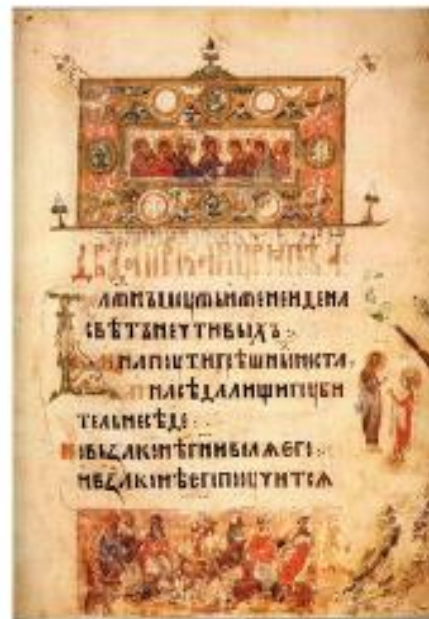 иже не иде на
свѣтъ нечтивыхъ
и на поути грѣшныи не ста
на сѣдалищи гоуби
тель не сѣде
но въ законѣ гни волѧ его
и въ законѣ его пооучитсѧ